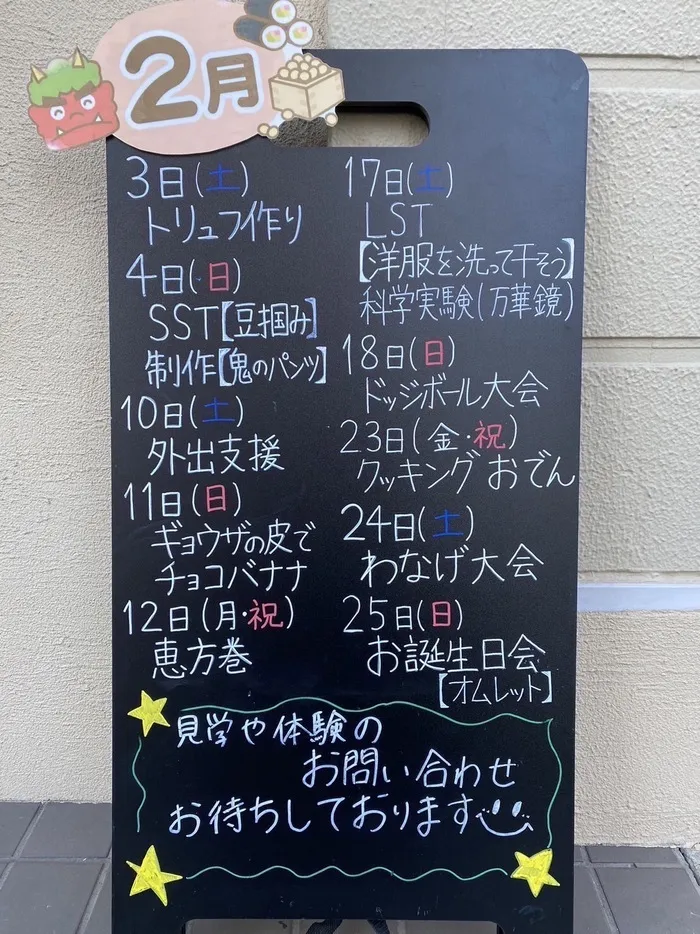 2月
3日(土)
トリュフ作り
4日(日)
SST【豆掴み】
制作【鬼のパンツ】
10日(土)
外出支援
11日(日)
ギョウザの皮で
チョコバナナ
12日(月·祝)
恵方巻
17日(土)
LST
【洋服を洗って干そう】
科学実験(万華鏡)
18日(日)
ドッジボール大会
23日(金·祝)
クッキング おでん
24日(土)
わなげ大会
25日(日)
お誕生日会
【オムレット】
見学や体験の
お問い合わせ
お待ちしております